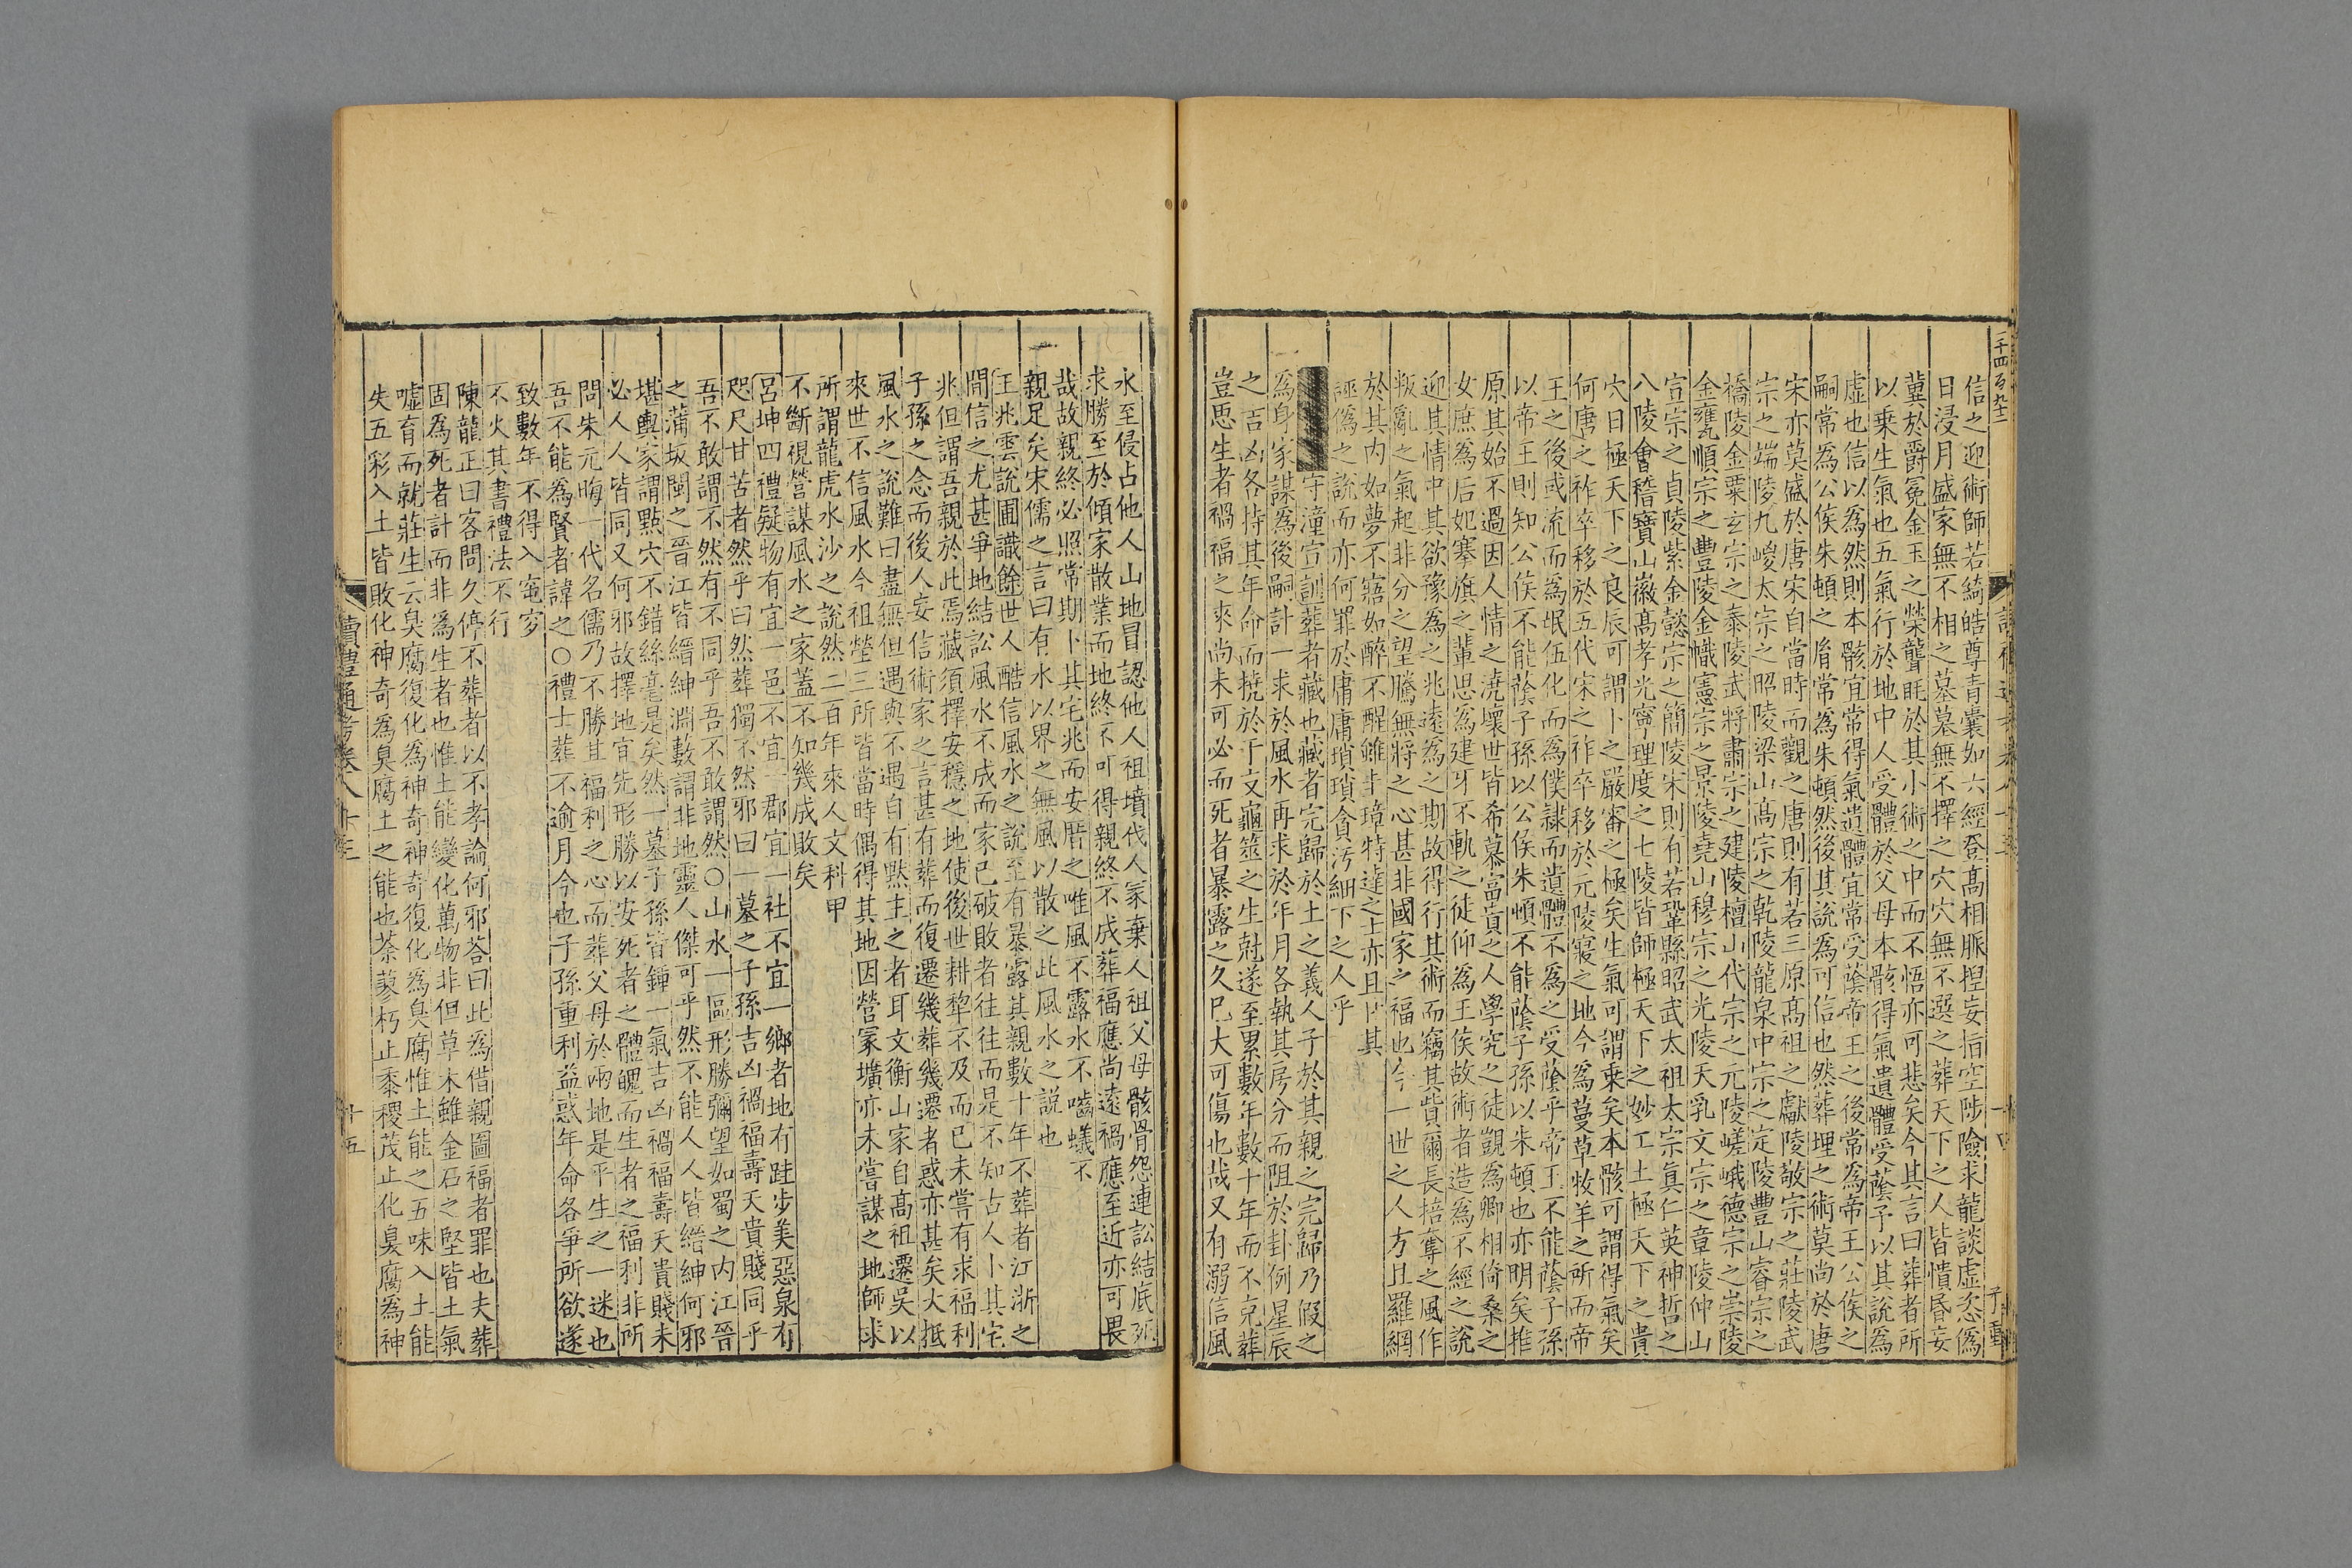 二千四百九十二
信之迎術師若綺皓尊青囊如六經登髙相脈揑妄指空陟險求龍談虛忽爲
日浸月盛家無不相之墓墓無不擇之穴穴無不選之葬天下之人皆憒昏妄
兾於爵冕金玉之榮聾眊於其小術之中而不悟亦可悲矣今其言曰葬者所
以乗生氣也五氣行於地中人受體於父母本骸得氣遺體受蔭予以其說爲
虛也信以爲然則本骸宜常得氣遺體宜常受蔭帝王之後常爲帝王公侯之
嗣常爲公侯朱頓之胤常爲朱頓然後其説爲可信也然葬埋之術莫尚於唐
宋亦莫盛於唐宋自當時而觀之唐則有若三原髙祖之獻陵敬宗之莊陵武
宗之端陵九嵕太宗之昭陵梁山髙宗之乾陵龍泉中宗之定陵豐山睿宗之
橋陵金粟玄宗之泰陵武將肅宗之建陵檀山代宗之元陵嵯峨德宗之崇陵
金甕順宗之豐陵金幟憲宗之景陵堯山穆宗之光陵天乳文宗之章陵仲山
宣宗之貞陵紫金懿宗之簡陵宋則有若鞏縣昭武太祖太宗眞仁英神哲之
八陵會稽寶山徽髙孝光寧理度之七陵皆師極天下之妙工土極天下之貴
穴日極天下之良辰可謂卜之嚴審之極矣生氣可謂乗矣本骸可謂得氣矣
何唐之祚卒移於五代宋之祚卒移於元陵寢之地今爲蔓草牧羊之所而帝
王之後或流而爲氓伍化而爲僕隷而遺體不爲之受蔭乎帝王不能蔭子孫
以帝王則知公侯不能蔭子孫以公侯朱頓不能蔭子孫以朱頓也亦明矣推
原其始不過因人情之澆壞世皆希慕富貢之人學究之徒覬爲卿相倚桑之
女庶爲后妃搴旗之輩思爲建牙不軌之徒仰爲王侯故術者造爲不經之說
迎其情中其欲豫爲之兆遠爲之期故得行其術而竊其貲爾長掊奪之風作
叛亂之氣起非分之望騰無將之心甚非國家之福也今一世之人方且羅網
於其内如夢不寤如醉不醒雖圭璋特達之士亦且
誣僞之說而亦何罪於庸庸瑣瑣貪汚細下之人乎
守潼宣訓葬者藏也藏者完歸於土之義人子於其親之完歸乃假之
爲身家謀爲後嗣計一求於風水再求於年月各執其房分而阻於卦例星辰
之吉凶各恃其年命而撓於干文龜筮之生尅遂至累數年數十年而不克葬
豈思生者禍福之來尚未可必而死者暴露之久巳大可傷也哉又有溺信風
水至侵占他人山地冒認他人祖墳代人冢棄人祖父母骸骨怨連訟結底死
求勝至於傾家散業而地終不可得親終不成葬福應尚遠禍應至近亦可畏
哉故親終必照常期卜其宅兆而安厝之唯風不露水不嚙蟻不
親足矣宋儒之言曰有水以界之無風以散之此風水之説也
王兆雲説圃識餘世人酷信風水之說至有暴露其親數十年不葬者江浙之
間信之尤甚爭地結訟風水不成而家已破敗者往往而是不知古人卜其宅
兆但謂吾親於此焉藏須擇安穩之地使後世耕犂不及而已未嘗有求福利
子孫之念而後人妄信術家之言甚有葬而復遷幾葬幾遷者惑亦甚矣大抵
風水之說難曰盡無但遇與不遇自有黙主之者耳文衡山家自髙祖遷吳以
來世不信風水今祖塋三所皆當時偶得其地因營冢壙亦未嘗謀之地師求
所謂龍虎水沙之說然二百年來人文科甲
不斷視營謀風水之家蓋不知幾成敗矣
呂坤四禮疑物有宜一邑不宜一郡宜一社不宜一鄉者地有跬步美惡泉有
咫尺甘苦者然乎曰然葬獨不然邪曰一墓之子孫吉凶禍福壽夭貴賤同乎
吾不敢謂不然有不同乎吾不敢謂然○山水一區形勝彌望如蜀之内江晉
之蒲坂閩之晉江皆縉紳淵藪謂非地靈人傑可乎然不能人人皆縉紳何邪
堪輿家謂點穴不錯絲毫是矣然一墓子孫皆鍾一氣吉凶禍福壽夭貴賤未
必人人皆同又何邪故擇地宜先形勝以安死者之體魄而生者之福利非所
問朱元晦一代名儒乃不勝其福利之心而葬父母於兩地是平生之一迷也
吾不能爲賢者諱之○禮士葬不逾月今也子孫重利益惑年命各爭所欲遂
致數年不得入窀穸
不火其書禮法不行
陳龍正曰客問久停不葬者以不孝論何邪荅曰此爲借親圖福者罪也夫葬
固爲死者計而非爲生者也惟土能變化萬物非但草木雖金石之堅皆土氣
噓育而就莊生云臭腐復化爲神奇神奇復化爲臭腐惟土能之五味入土能
失五彩入土皆敗化神奇爲臭腐土之能也荼蓼朽止黍稷茂止化臭腐爲神
讀禮通考卷八十三
十五